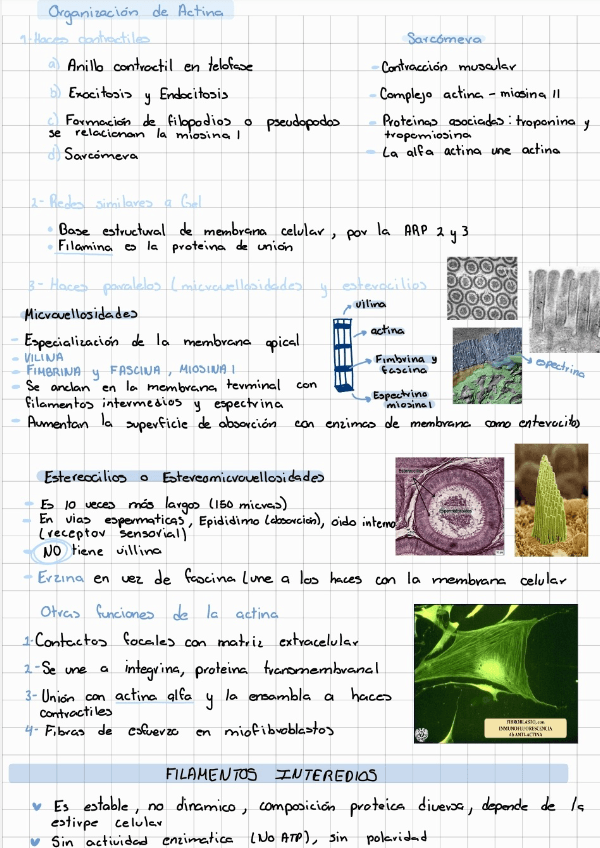 Organización de Actina
1-Haces contractiles
a) Anillo contractil en telofase
b) Exocitosis y Endocitosis
c) Formación de filopodios o pseudopodos
se relacionan la miosina I
d) Sarcómera
Sarcómera
- Contracción muscular
- Complejo actina - miosina II
- Proteinas asociadas: troponina y
tropomiosina
- La alfa actina une actina
2- Redes similares a Gel
• Base estructural de membrana celular, por la ARP 2 y 3
• Filamina es la proteina de unión
3- Haces paralelos (microvellosidades y esterocilios
Microvellosidades
- Especialización de la membrana apical
- VILINA
- FIMBRINA y FASCINA, MIOSINA I
- Se anclan en la membrana terminal con
filamentos intermedios y espectrina
- Aumentan la superficie de absorción con enzimas de membrana como enterocitos
vilina
actina
Fimbrina y
fascina
Espectrina
miosina I
espectrina
Estereocilios o Estereomicrovellosidades
- Es 10 veces más largos (150 micras)
- En vias espermaticas, Epididimo (absorción), oido interno
(receptor sensorial)
- NO tiene villina
- Erzina en vez de fascina (une a los haces con la membrana celular
Otras funciones de la actina
1-Contactos focales con matriz extracelular
2-Se une a integrina, proteina transmembranal
3- Unión con actina alfa y la ensambla a haces
contractiles
4- Fibras de esfuerzo en miofibroblastos
FIBROBLASTO, con
INMUNOFLUORESCENCIA
FILAMENTOS INTEREDIOS
Es estable, no dinamico, composición proteica diversa, depende de la
estirpe celular
Sin actividad enzimatica (No ATP), sin polaridad